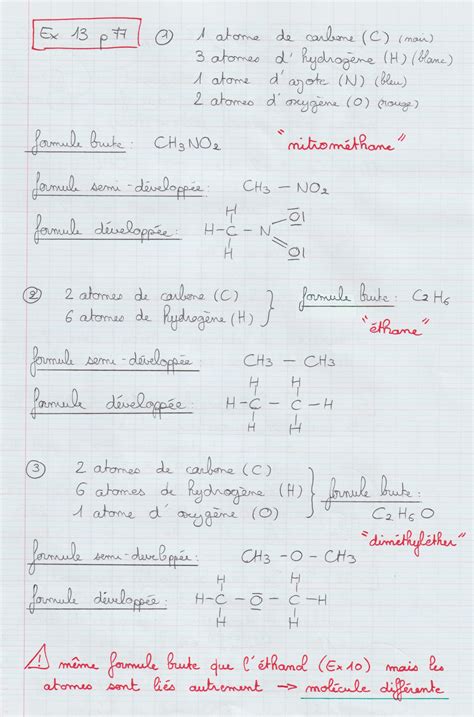 Ex 13 p 77 ① 1 atome de carbone (C) (noir)
3 atomes d'hydrogène (H) (blanc)
1 atome d'azote (N) (bleu)
2 atomes d'oxygène (O) (rouge)
formule brute : CH3NO2 "nitrométhane"
formule semi-développée : CH3 — NO2
H O
formule développée : H-C-N
H O
② 2 atomes de carbone (C) } formule brute : C2H6
6 atomes de hydrogène (H) "éthane"
formule semi-développée : CH3 — CH3
H H
formule développée : H-C-C-H
H H
③ 2 atomes de carbone (C)
6 atomes de hydrogène (H) } formule brute :
1 atome d'oxygène (O) C2H6O
"diméthyléther"
formule semi-développée : CH3 -O- CH3
H H
formule développée : H-C-O-C-H
H H
! même formule brute que l'éthanol (Ex 10) mais les
atomes sont liés autrement → molécule différente